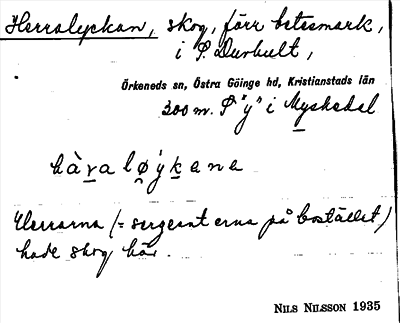 Herralyckan, skog, förr betesmark,
i S. Duvhult,
Örkeneds sn, Östra Göinge hd, Kristianstads län
300 m. S "y" i Myshedal
hàralø'ykana
Herrarna (= sergeanterna på bostället)
hade skog här.
NILS NILSSON 1935